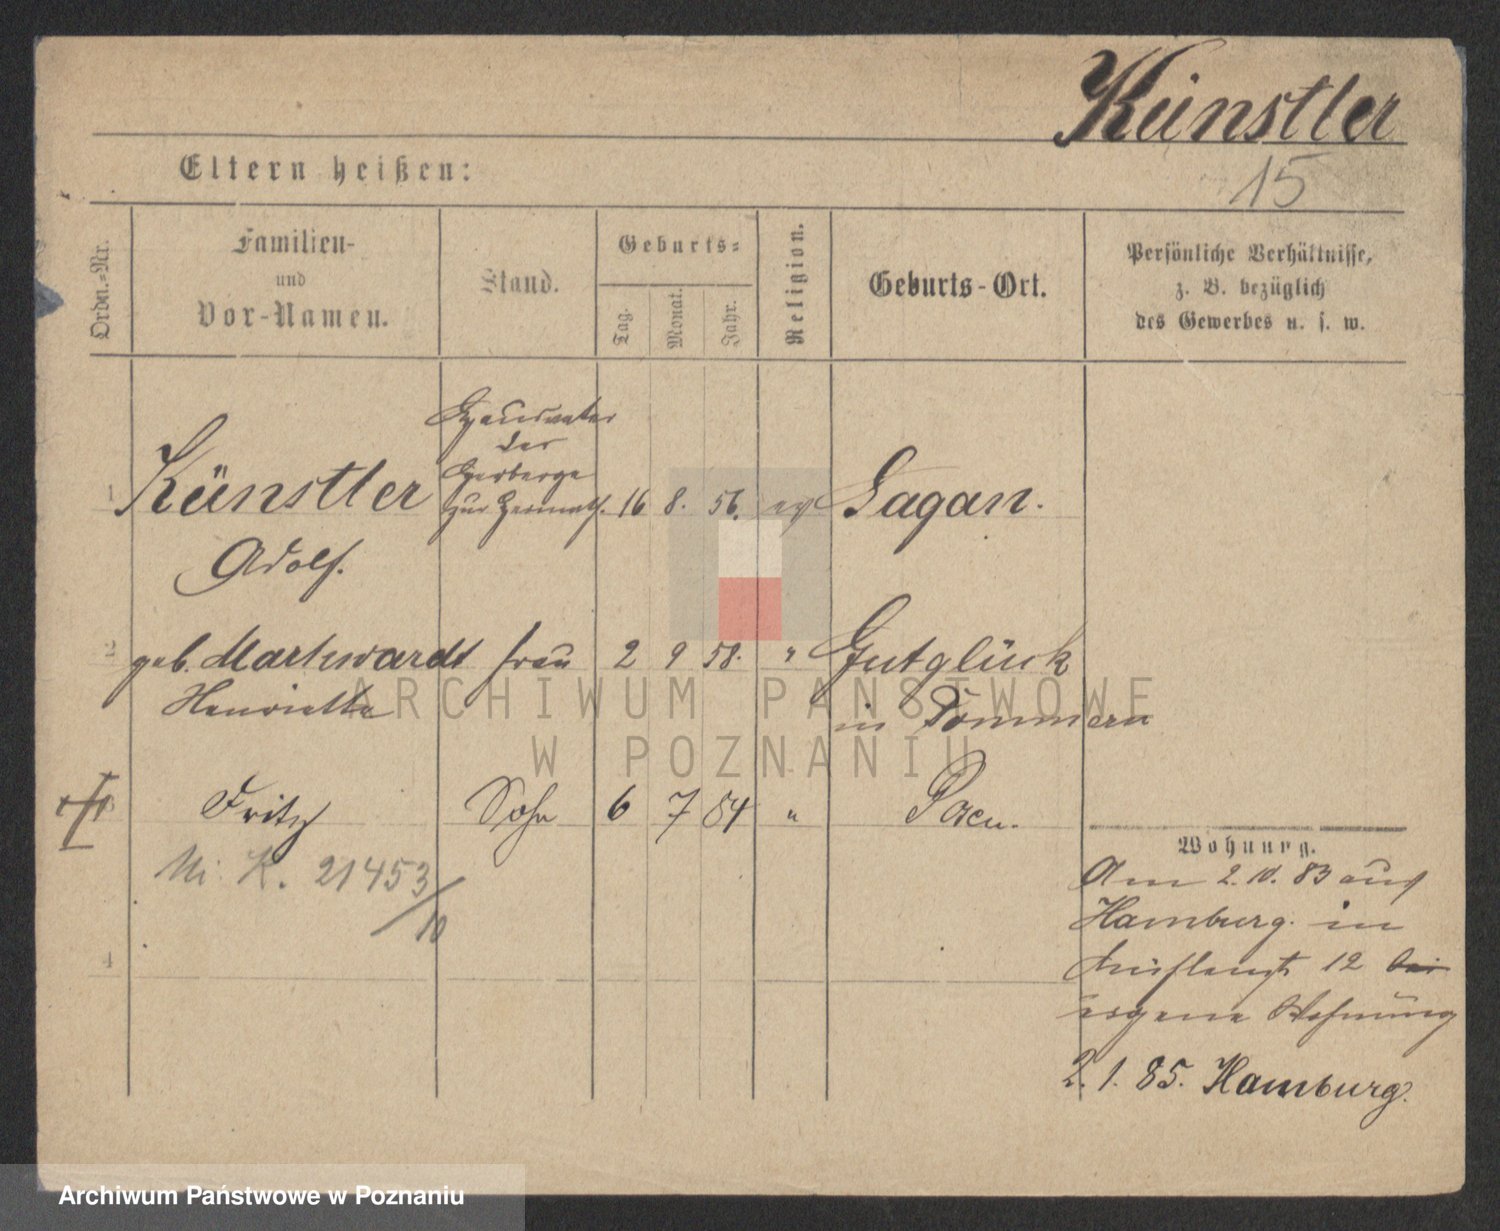 Künstler
15
Eltern heißen:
Ordn.-Nr.
Familien-
und
Vor-Namen.
Stand.
Geburts-
Tag.
Monat.
Jahr.
Religion.
Geburts-Ort.
Persönliche Verhältnisse,
z. B. bezüglich
des Gewerbes u. s. w.
1 Künstler
Adolf.
Hausvater
der
Herberge
zur Heimath.
16 8. 56. ev Sagan.
2 geb. Markwardt Frau 2 9 58. " Gutglück
Henriette in Pommern
3 Fritz Sohn 6 7 84 " Posen.
K. 21453/10
4
Wohnung.
Am 2. 10. 83 aus
Hamburg. in
12 bei
eigene Wohnung
2. 1. 85. Hamburg.
ARCHIWUM PAŃSTWOWE
W POZNANIU
Archiwum Państwowe w Poznaniu